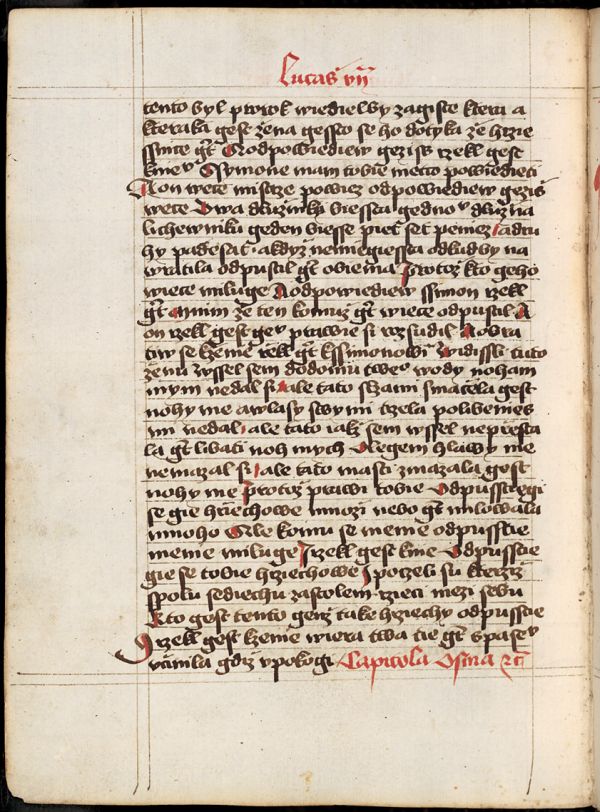 Lucas vij
tento byl prorok wiedielby zagiste ktera a
kteraka gest žena gessto se ho dotyka že hrzie
ssnice gt̄ A odpowiediew gezis rzekl gest
knie&#x367; Symone mam tobie nieco powiedieci
A on wece mistrze powiez odpowiediew gezis
wece Dwa dluznīky biessta gednoᵘ dluzna
lichewniku geden biesse piet set peniez a dru
hy padesat a kdyz nemiegiessta odkud by na
wratila odpustil gt̄ obiema Protoz kto geho
wiece miluge A odpowiediew ssimon rzekl
gt̄ mnim že ten komuz gt̄ wiece odpustil A
on rzekl gest geᵘ prawie si rozsudil A obra
tiw se kženie rzekl gt̄ kssimonowi Widissli tuto
ženu wssel sem do domu tweᵒ wody noham
mym nedal si ale tato slzami smacela gest
nohy me a wlasy swymi trzela polibenie
mi nedal ale tato iakž sem wssel neprzesta
la gt̄ libati noh mych Olegem hlawy me
nemazal si ale tato masti zmazala gest
nohy me Protoz prawi tobie Odpusstiegi
se gie hrziechowe mnozi nebo gt̄ milowala
mnoho Ale komu se menie odpusstie
menie miluge I rzekl gest knie Odpusstie
gie se tobie hrziechowe I poczeli su kterziz
spolu sediechu za stolem rzieci mezi sebu
Kto gest tento genz take hrziechy odpusstie
I rzekl gest kženie wiera twa tie gt̄ spaseᵘ
vcinila gdiz vpokogi Capitola Osma